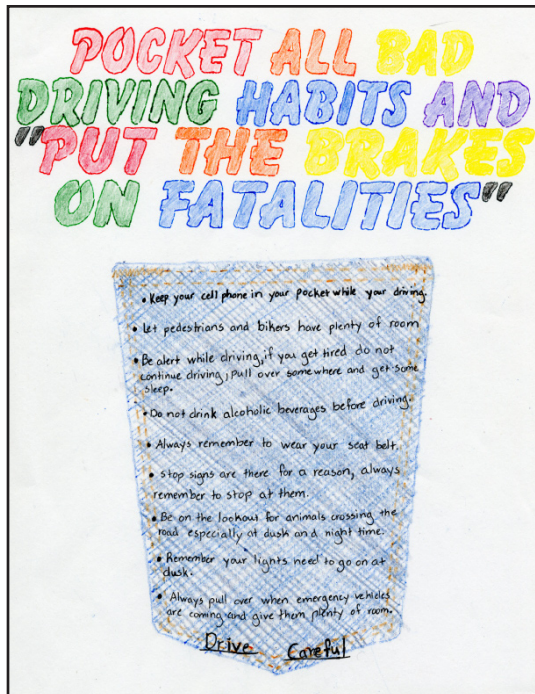 POCKET ALL BAD
DRIVING HABITS AND
"PUT THE BRAKES
ON FATALITIES"
• Keep your cell phone in your pocket while your driving.
• Let pedestrians and bikers have plenty of room
• Be alert while driving, if you get tired do not
continue driving, pull over somewhere and get some
sleep.
• Do not drink alcoholic beverages before driving.
• Always remember to wear your seat belt.
• Stop signs are there for a reason, always
remember to stop at them.
• Be on the lookout for animals crossing the
road especially at dusk and night time.
• Remember your lights need to go on at
dusk.
• Always pull over when emergency vehicles
are coming and give them plenty of room.
Drive Careful